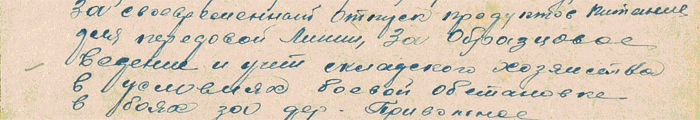 За своевременный отпуск продуктов питание
для передовой линии, За Образцовое
ведение и учет складского хозяиства
в условиях боевой обстановке
в боях за дер. Привольное